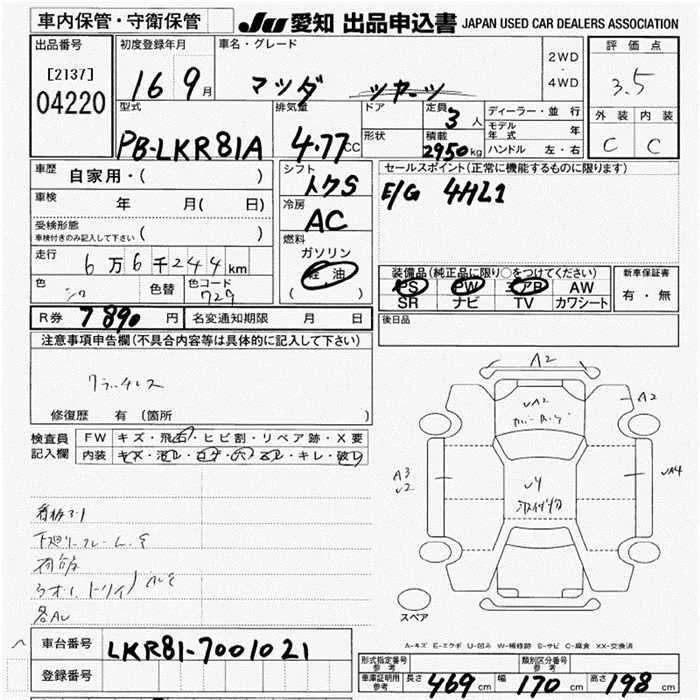 車内保管・守衛保管
JU 愛知 出品申込書 JAPAN USED CAR DEALERS ASSOCIATION
出品番号 初度登録年月 車名・グレード 2WD・4WD 評価点
[2137] 04220 16 9月 マツダ 3.5
型式 排気量 ドア 定員 3人 ディーラー・並行 外装 内装
形状 積載 モデル年式 年
PB-LKR81A 4.77CC 2950kg ハンドル 左・右 C C
車歴 自家用・( ) シフト セールスポイント(正常に機能するものに限ります)
E/G 4HL1
車検 年 月( 日) 冷房 AC
受検形態 車検付きのみ記入して下さい ( ) 燃料
走行 6万6千244km ガソリン
軽油
( )
装備品(純正品に限り○をつけてください) 新車保証書
PS PW エアB AW 有・無
SR ナビ TV カワシート
色 シロ 色替 色コード 729
R券 7890円 名変通知期限 月 日 後日品
注意事項申告欄(不具合内容等は具体的に記入して下さい)
修復歴 有 (箇所 )
検査員記入欄 FW キズ・飛石・ヒビ割・リペア跡・X要
内装 キズ・汚レ・コゲ・穴・スレ・キレ・破レ
A2
A2
A3
A4
スペア
A-キズ E-エクボ U-凹み W-補修跡 S-サビ C-腐食 XX-交換済
車台番号 LKR81-7001021
登録番号
形式指定番号 参考 類別区分番号 参考
車庫証明用 参考 長さ 469cm 幅 170cm 高さ 198cm